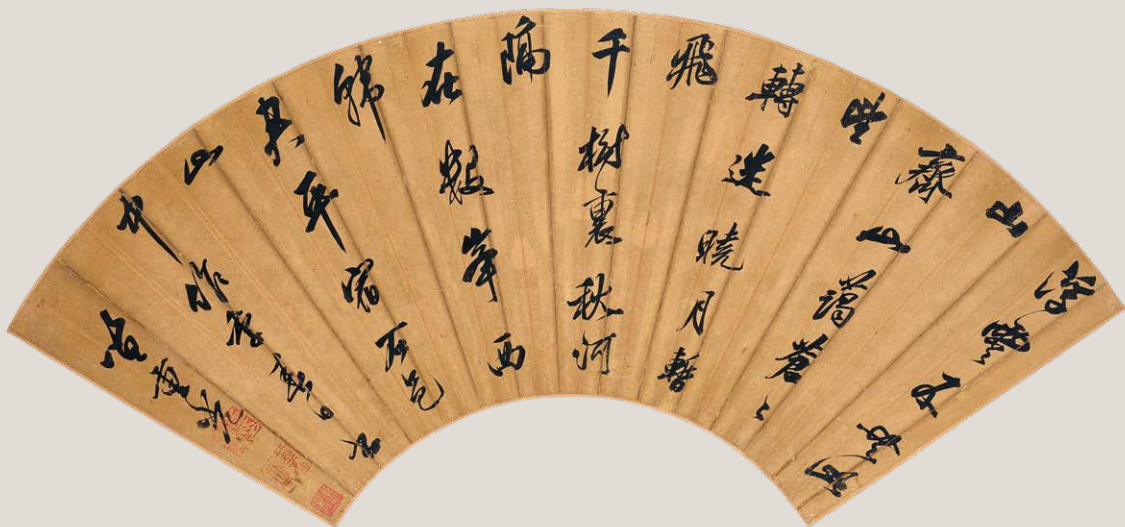 浮雲不共此
山
齊山靄蒼々
望
轉迷曉月暫
飛
千樹裏秋河
隔
在數峯西
韓
君平宿石邑
山
中作